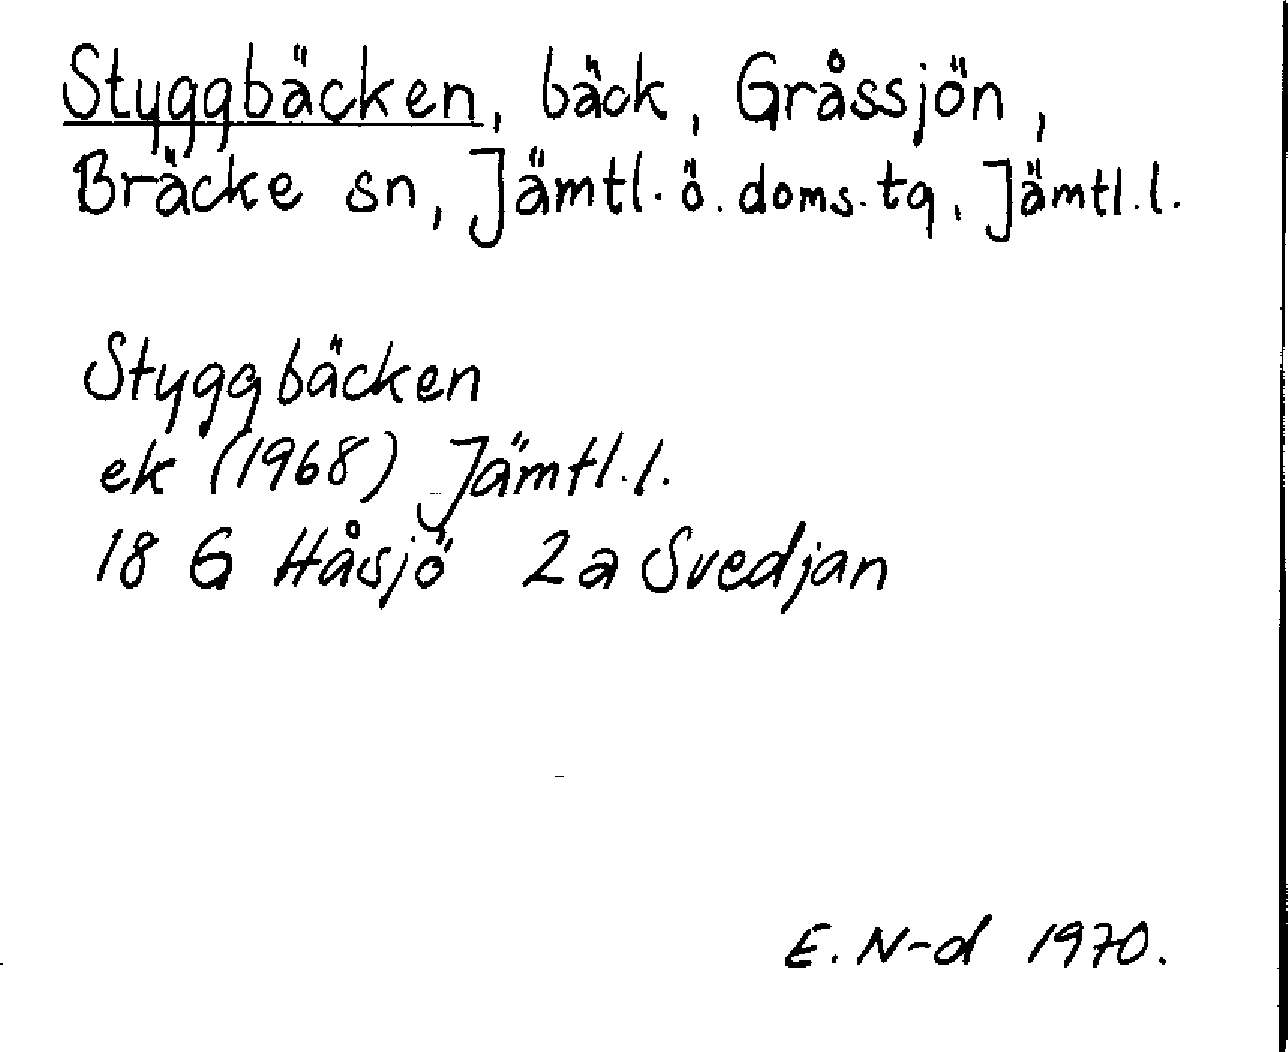 Styggbäcken, bäck, Gråssjön,
Bräcke sn, Jämtl. ö. doms. tg, Jämtl. l.
Styggbäcken
ek (1968) Jämtl. l.
18 G Håsjö 2a Svedjan
E. N-d 1970.